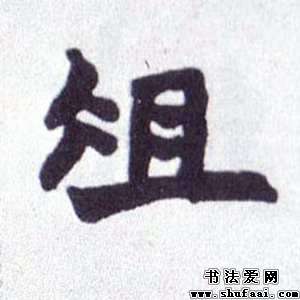 俎
书法爱网
www.shufaai.com